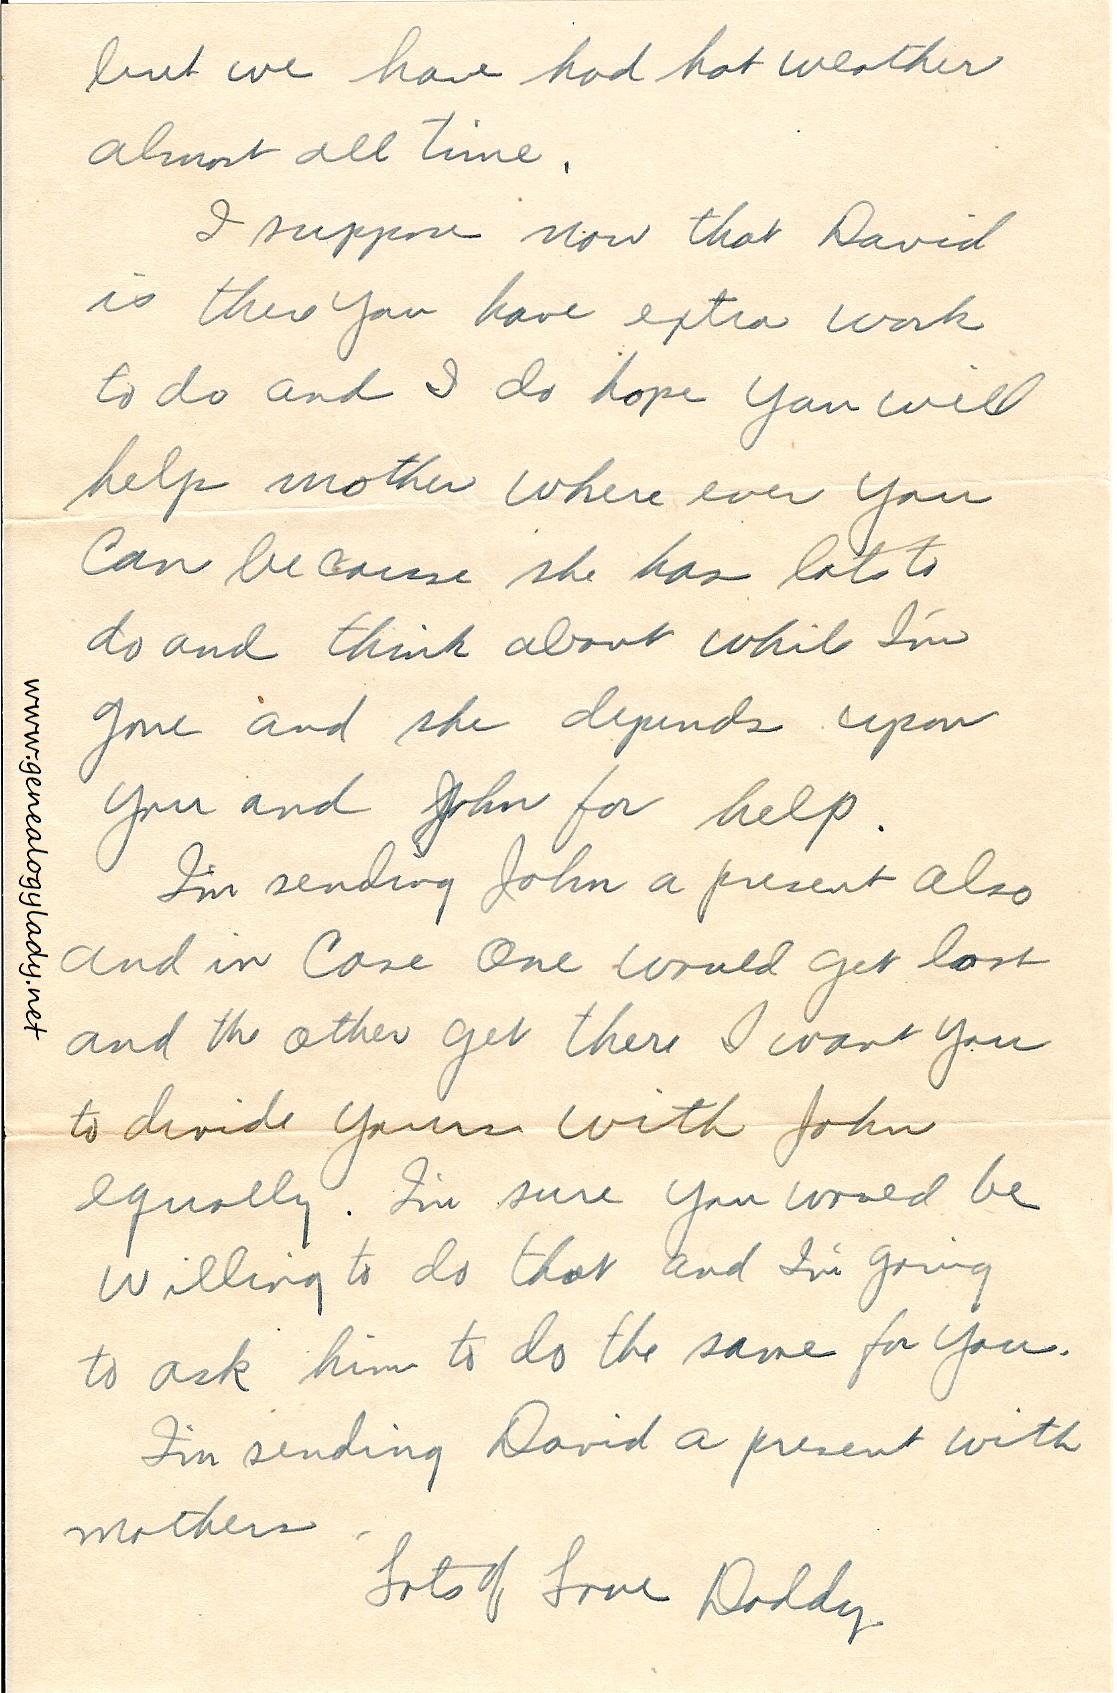 but we have had hot weather
almost all time.
I suppose now that David
is there you have extra work
to do and I do hope you will
help mother where ever you
can because she has lots to
do and think about while I'm
gone and she depends upon
you and John for help.
I'm sending John a present also
and in Case One would get lost
and the other get there I want you
to divide yours with John
equally. I'm sure you would be
willing to do that and I'm going
to ask him to do the same for you.
I'm sending David a present with
mothers.
Lots of Love Daddy
www.genealogylady.net